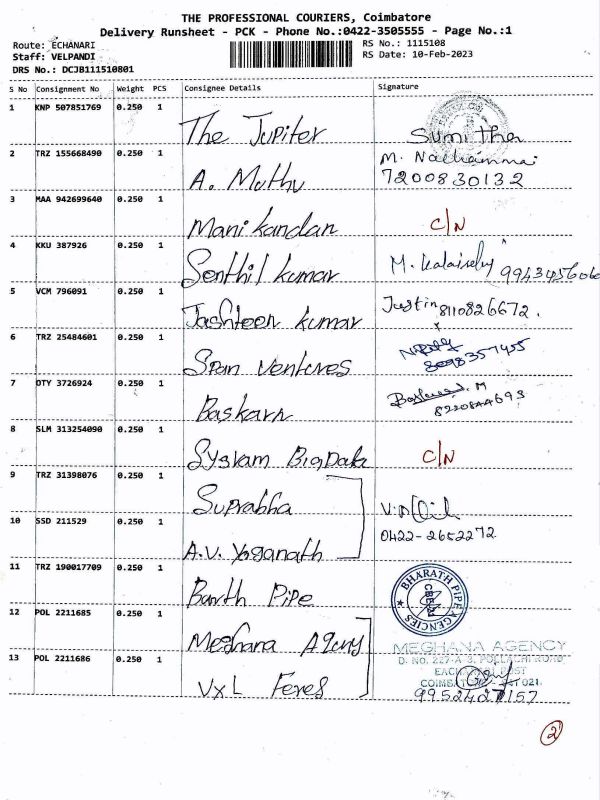 THE PROFESSIONAL COURIERS, Coimbatore
Delivery Runsheet - PCK - Phone No.:0422-3505555 - Page No.:1
Route: ECHANARI
Staff: VELPANDI
DRS No.: DCJB111510801
RS No.: 1115108
RS Date: 10-Feb-2023
S No Consignment No Weight PCS Consignee Details Signature
1 KNP 507851769 0.250 1 The Jupiter Sumitha
2 TRZ 155668490 0.250 1 A. Muthu M. Nachammai 7200830132
3 MAA 942699640 0.250 1 Manikandan C/N
4 KKU 387926 0.250 1 Senthil kumar M. Kalaiselvy 9943456066
5 VCM 796091 0.250 1 Jashteen kumar Justin 8110826672.
6 TRZ 25484601 0.250 1 Span Ventures 8098357455
7 OTY 3726924 0.250 1 Baskarn M 8220844693
8 SLM 313254090 0.250 1 Sysram BigData C/N
9 TRZ 31398076 0.250 1 Suprabha
10 SSD 211529 0.250 1 A.V. Yoganath 0422-2652272
11 TRZ 190017709 0.250 1 Barth Pipe BHARATH PIPE AGENCIES CBE-21
12 POL 2211685 0.250 1 Meghana Agency MEGHANA AGENCY
D. No. 227-A-3, POLLACHI ROAD,
EACHANARI POST
COIMBATORE - 641 021.
13 POL 2211686 0.250 1 VXL Feres 9952427157
2